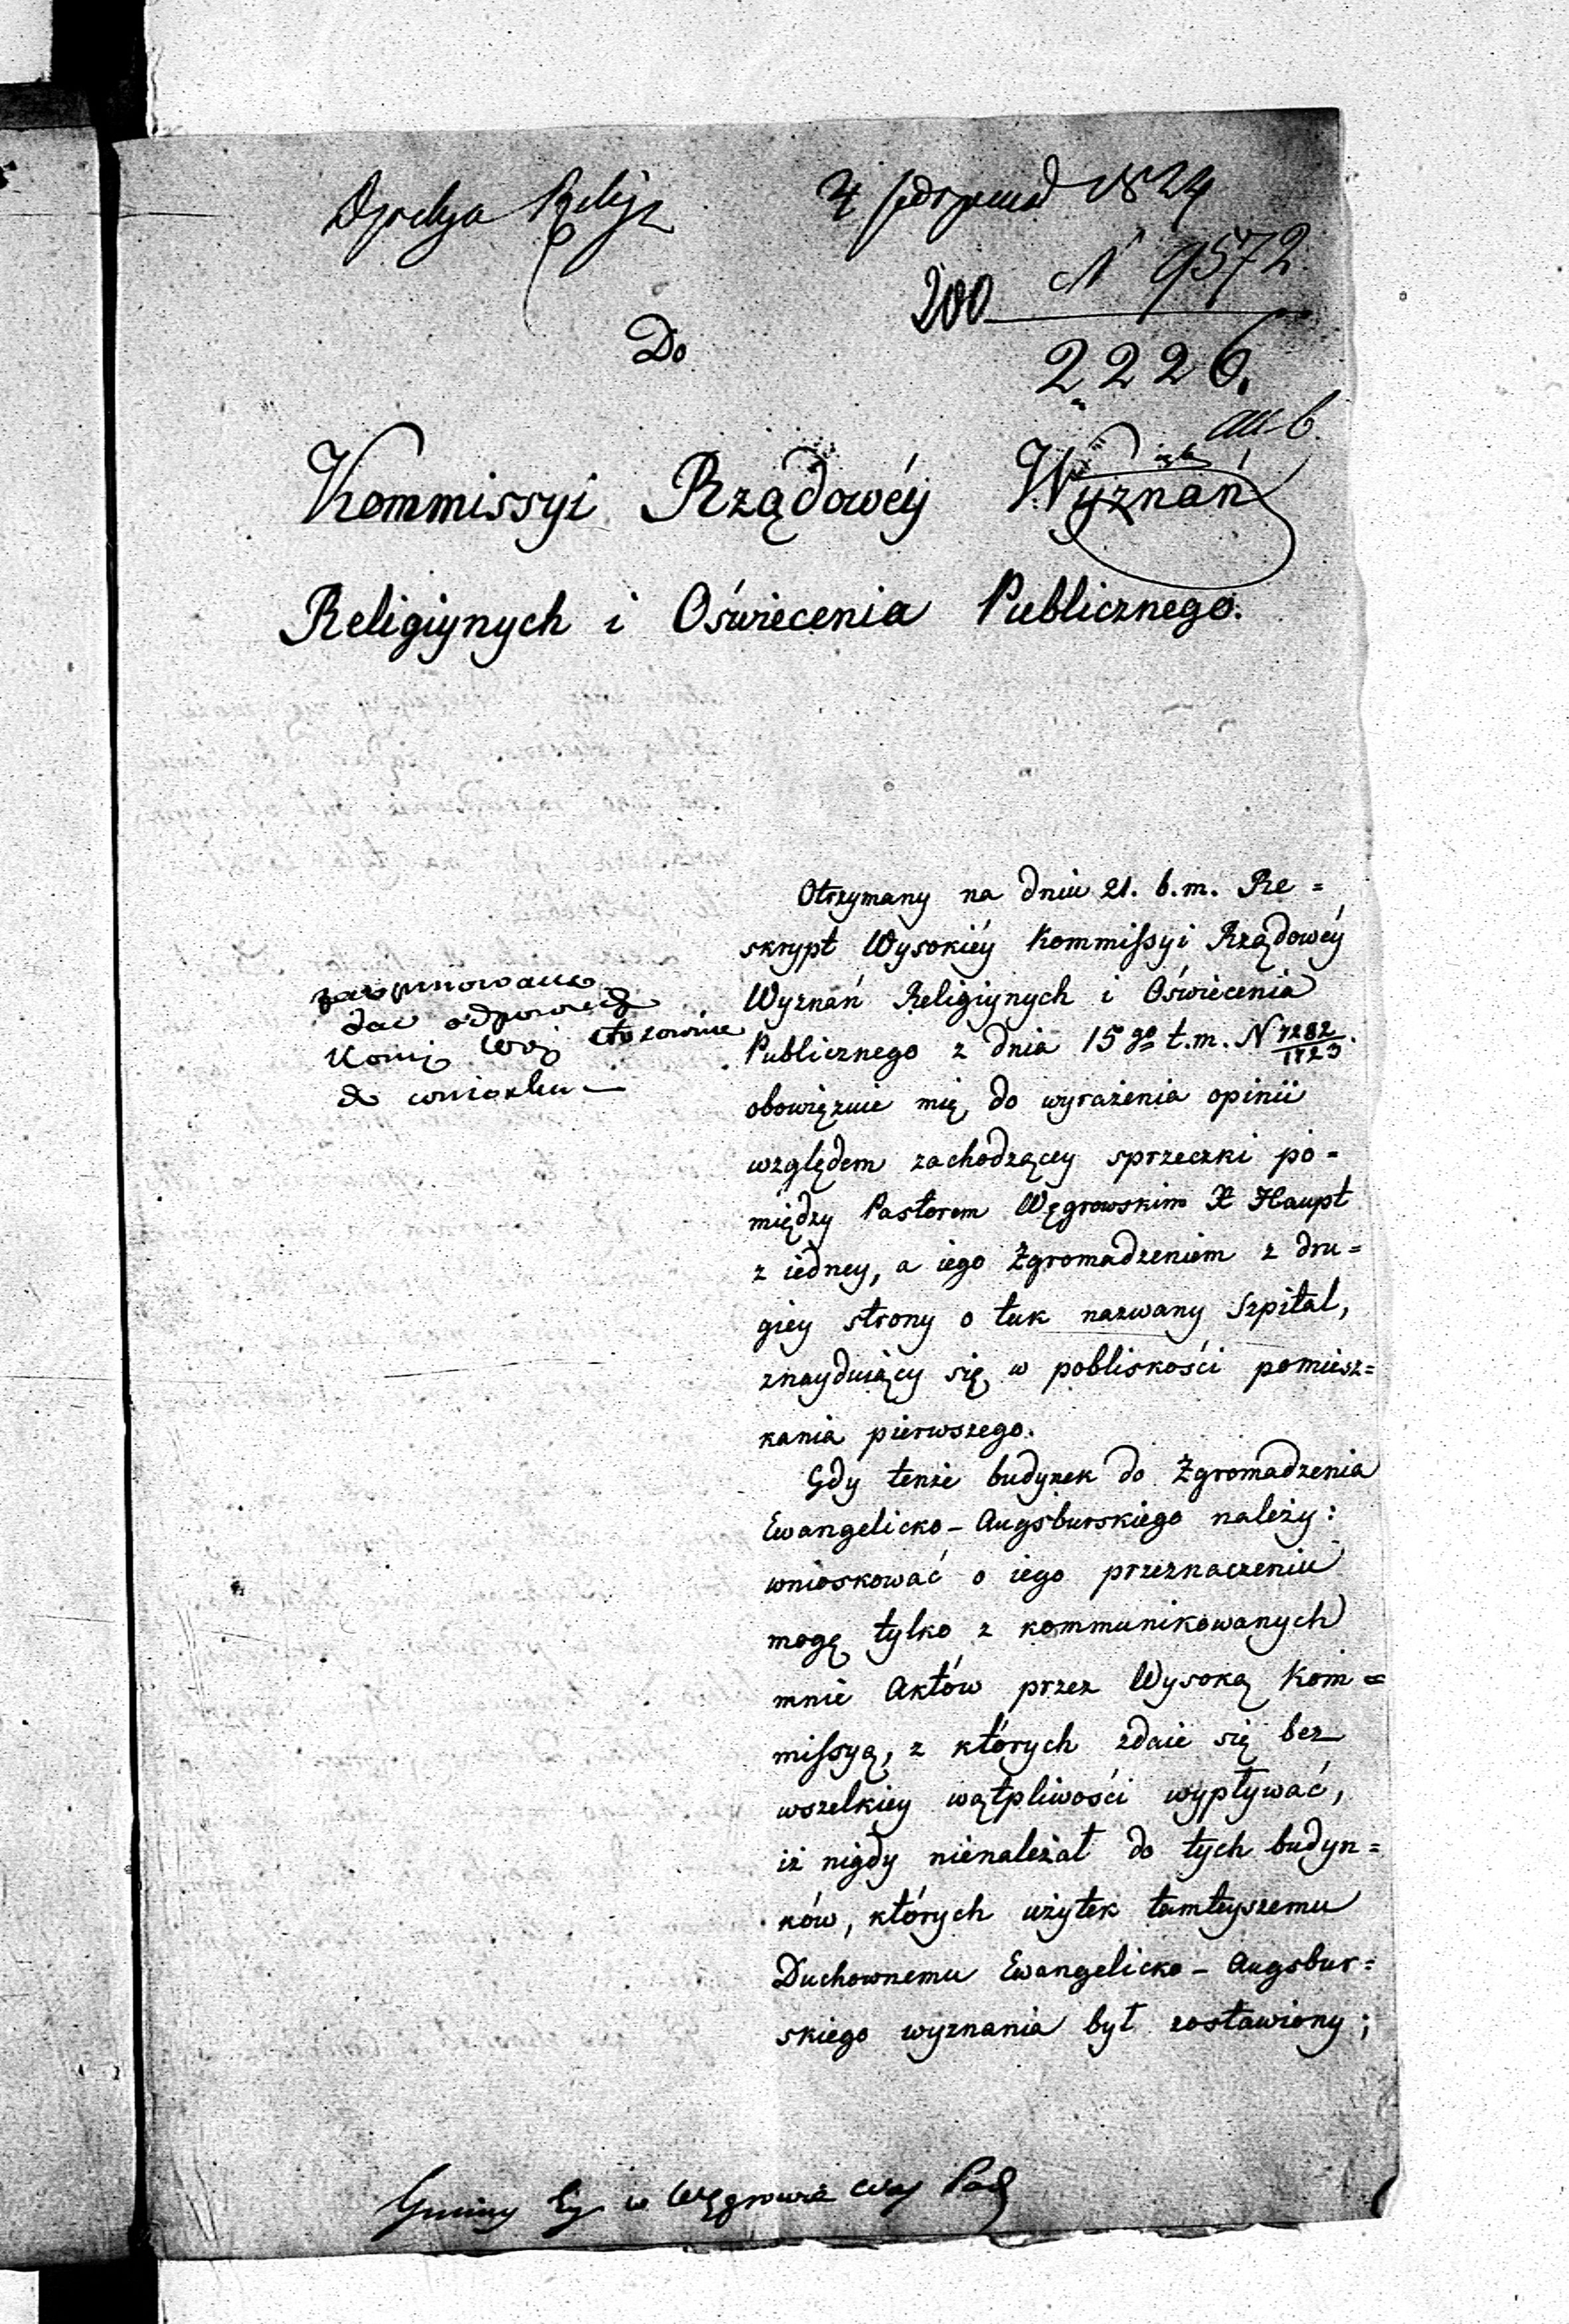 1824
N 9572
200
2226.
Do
Kommissyi Rządowéy Wyznań
Religiynych i Oświecenia Publicznego.
Otrzymany na dniu 21. b.m. Re=
skrypt Wysokiéy Kommissyi Rządowéy
Wyznań Religiynych i Oświecenia
Publicznego z dnia 15go t.m. N 7282/1823.
obowięzuie mię do wyrażenia opinii
względem zachodzącey sprzeczki po=
między Pastorem Węgrowskim X Haupt
z iedney, a iego Zgromadzeniem z dru=
giey strony o tak nazwany Szpital,
znayduiący się w pobliskości pomiesz=
kania pierwszego.
Gdy tenże budynek do Zgromadzenia
Ewangelicko-Augsburskiego należy:
wnioskować o iego przeznaczeniu
mogę tylko z kommunikowanych
mnie Aktów przez Wysoką Kom=
missyą, z których zdaie się bez
wszelkiey wątpliwości wypływać,
iż nigdy nienależał do tych budyn=
ków, których użytek tamteyszemu
Duchownemu Ewangelicko-Augsbur=
skiego wyznania był zostawiony;
dać odpowiedź
do wniosku
Gminy Ew w Węgrowie Woj Podl